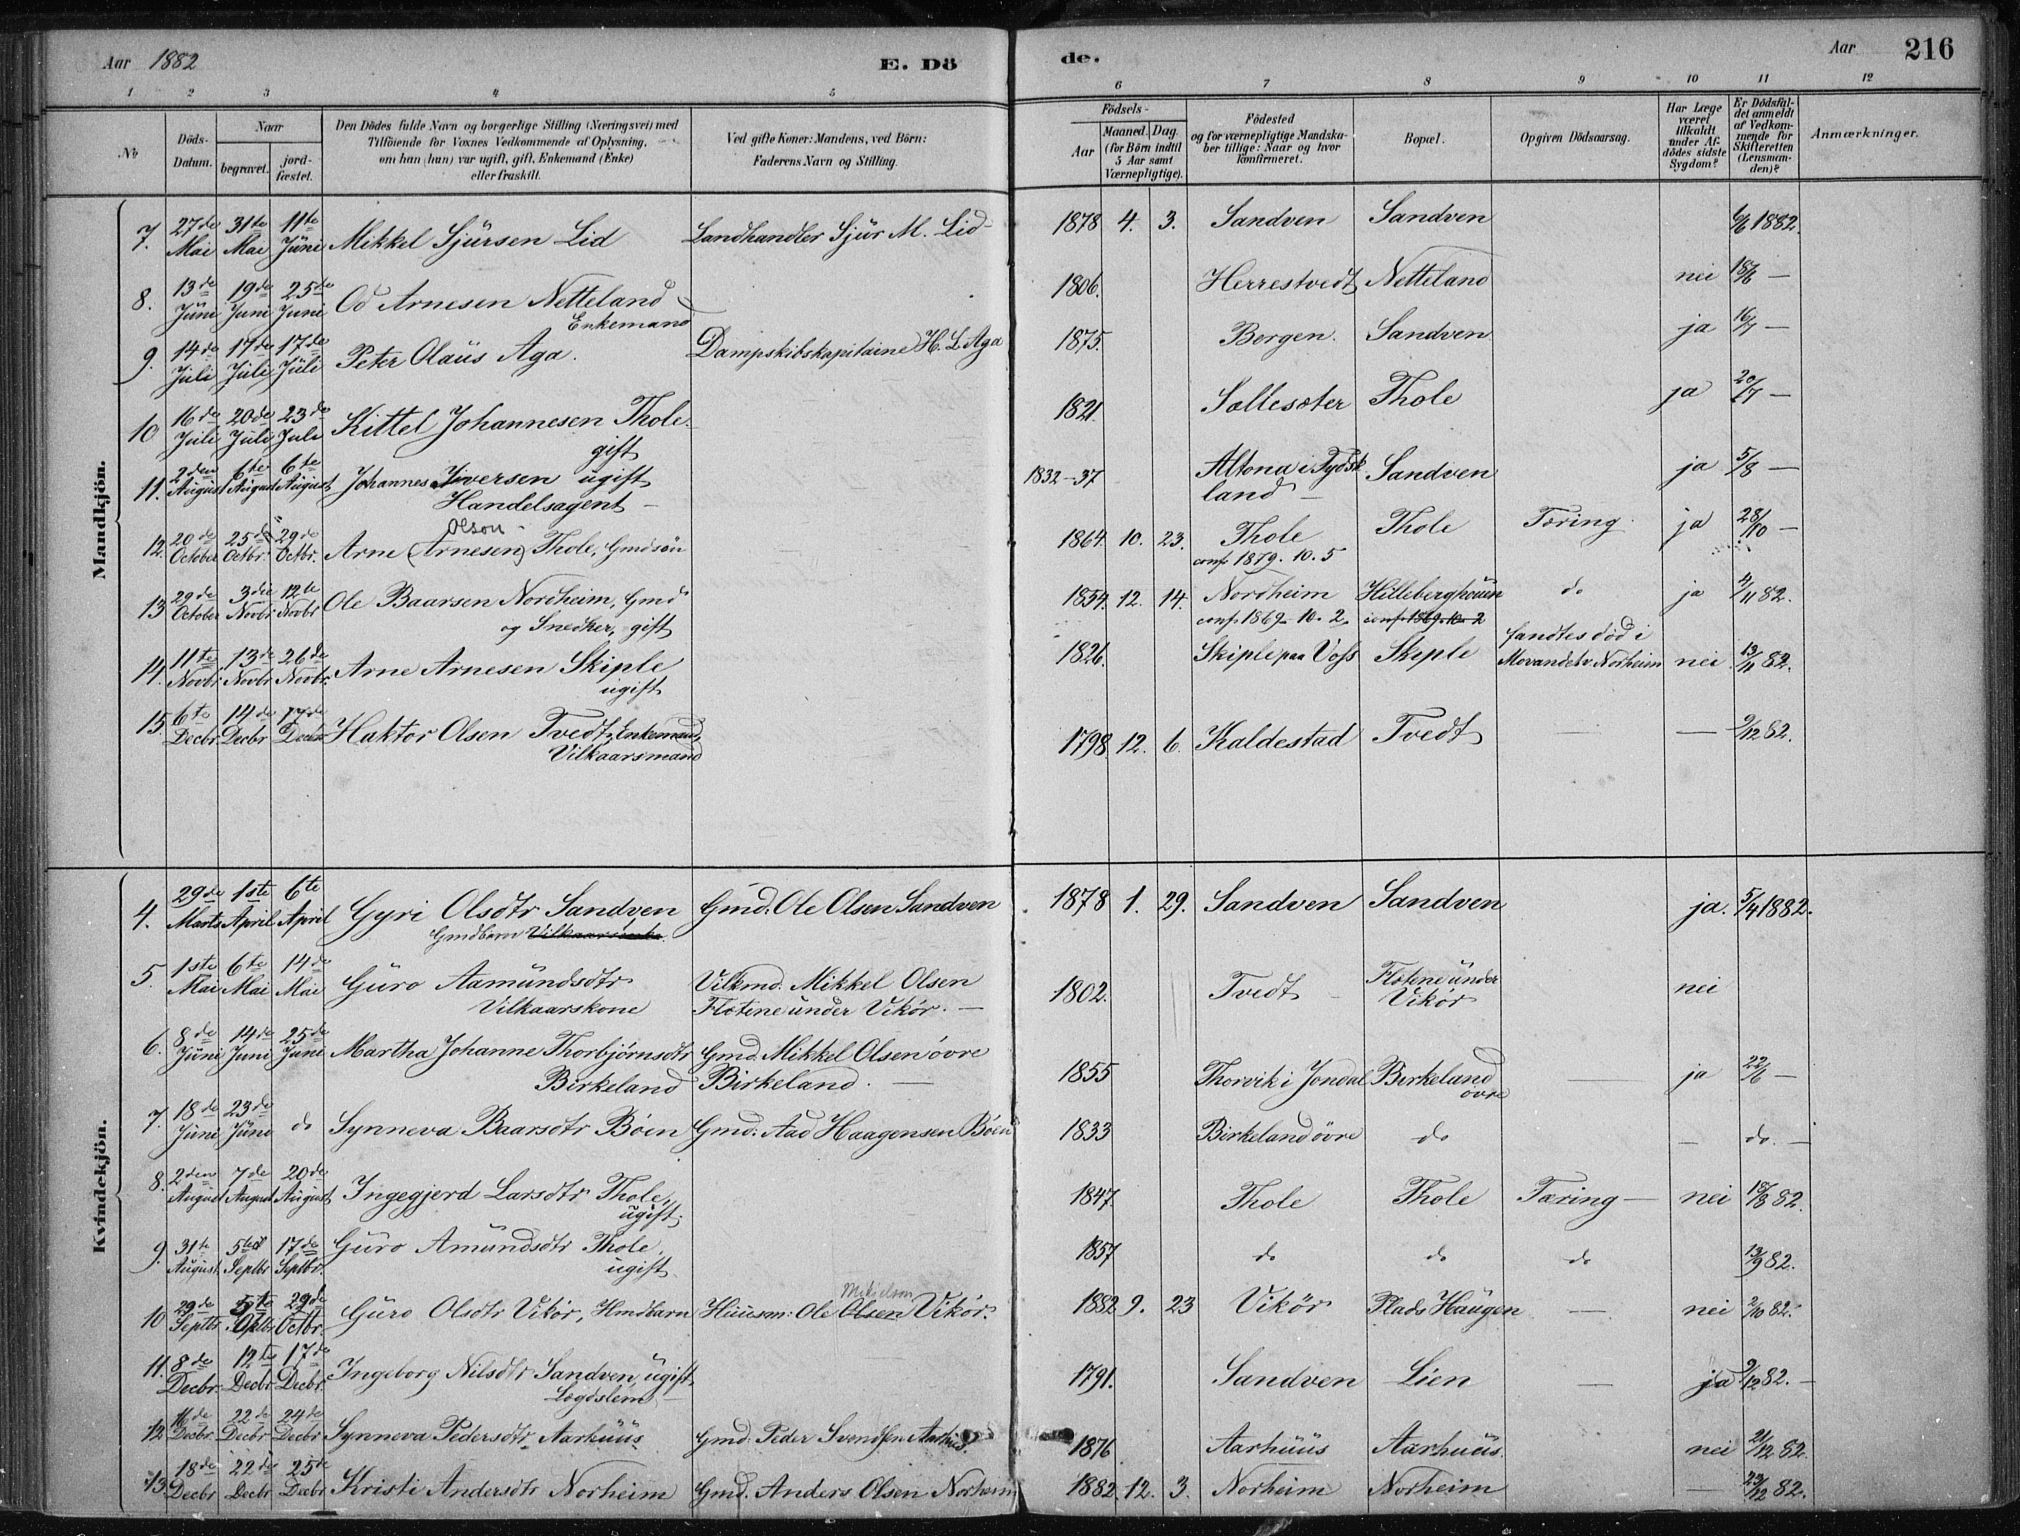 Aar 1882 E. Dö de. Aar 216
1 2 3 4 5 6 7 8 9 10 11 12
No
Döds-Datum.
Naar
begravet.
jord-fæstet.
Den Dödes fulde Navn og borgerlige Stilling (Næringsvei) med
Tilföiende for Voxnes Vedkommende af Oplysning,
om han (hun) var ugift, gift, Enkemand (Enke)
eller fraskilt.
Ved gifte Koner: Mandens, ved Börn:
Faderens Navn og Stilling.
Födsels-
Aar
Maaned. Dag.
(for Börn indtil
5 Aar samt
Værnepligtige).
Födested
og for værnepligtige Mandska-
ber tillige: Naar og hvor
konfirmeret.
Bopæl.
Opgiven Dödsaarsag.
Har Læge
været
tilkaldt
under Af-
dödes sidste
Sygdom?
Er Dödsfal-
det anmeldt
af Vedkom-
mende for
Skifteretten
(Lensman-
den)?
Anmærkninger.
Mandkjön.
7. 27de Mai 31te Mai 11te Juni Mikkel Sjursen Lid Landhandler Sjur M. Lid 1878 4. 3. Sandven Sandven 6/6 1882.
8. 13de Juni 19de Juni 25de Juni Od Arnesen Netteland Enkemand 1806. Herrestvedt Netteland nei 18/6 —
9. 14de Juli 17de Juli 17de Juli Peter Olaus Aga. Dampskibskapitaine H. L. Aga 1875. Bergen. Sandven ja 16/7 —
10 16de Juli 20de Juli 23de Juli Kittel Johannesen Thole. gift 1821. Sollesæter Thole ja 20/7 —
11. 2den August 6te August 6te August Johannes Iversen ugift Handelsagent — 1832-37 Altona i Tydsk land — Sandven ja 5/8 —
12. 20de October 25de Octbr. 29de Octbr. Arne (Arnesen) Olson Thole, Gmdsön 1864. 10. 23. Thole conf 1879. 10. 5 Thole Tæring. ja 28/10 —
13 29de October 3die Novbr. 12te Novbr Ole Baarsen Nordheim, Gmd og Snedker, gift 1854. 12. 14. Nordheim conf 1869. 10. 2. Hilleberghöuen conf 1869. 10. 2 do ja 4/11 82.
14. 11te Novbr. 13de Novbr 26de Novbr. Arne Arnesen Skiple ugift 1826. Skiple paa Voss Skiple fandtes död i Movandet v. Norheim nei 13/11 82.
15. 6te Decbr. 14de Decbr 17de Decbr Haktor Olsen Tvedt, Enkemand, Vilkaarsmand 1798. 12. 6. Kaldestad Tvedt — — 9/12 82.
Kvindekjön.
4. 29de Marts 1ste April 6te April Gyri Olsdtr Sandven Gmdbarn Vilkaarsenke Gmd. Ole Olsen Sandven 1878 1. 29. Sandven Sandven ja. 5/4 1882.
5. 1ste Mai 6te Mai 14de Mai Guro Aamundsdtr Vilkaarskone Vilkmd. Mikkel Olsen Flotene under Vikör. — 1802. Tvedt — Flotene under Vikör nei
6. 8de Juni 14de Juni 25de Juni Martha Johanne Thorbjörnsdtr Birkeland Gmd. Mikkel Olsen övre Birkeland. — 1855 Thorvik i Jondal Birkeland övre — ja 22/6 —
7. 18de Juni 23de Juni do Synneva Baarsdtr Böen Gmd: Aad Haagensen Böen 1833 Birkeland övre do — do. —
8. 2den August 7de August 20de August Ingegjerd Larsdtr Thole, ugift. 1847. Thole Thole Tæring — nei 18/8 82.
9. 31te August. 5te Septbr 17de Septbr. Guro Amundsdtr Thole, ugift. 1857 do do do 13/9 82.
10 29de Septbr 29de Octbr. Guro Olsdtr Vikör, Hmdbarn Huusm: Ole Olsen Mikkelsen Vikör. 1882 9. 23 Vikör Plads Haugen — nei 2/10 82.
11. 8de Decbr. 12te Decbr 17de Decbr. Ingeborg Nilsdtr Sandven, ugift, Lægdslem — 1791. Sandven Lien — ja 9/12 82. —
12 16de Decbr. 22de Decbr 24de Decbr Synneva Pedersdtr. Aarhuus Gmd. Peder Svendsen Aarhus. 1876 Aarhuus Aarhuus. nei 21/12 82.
13. 18de Decbr 22de Decbr 25de Decbr Kristi Andersdtr Norheim Gmd. Anders Olsen Norheim 1882. 12. 3. Norheim Norheim — 23/12 82.